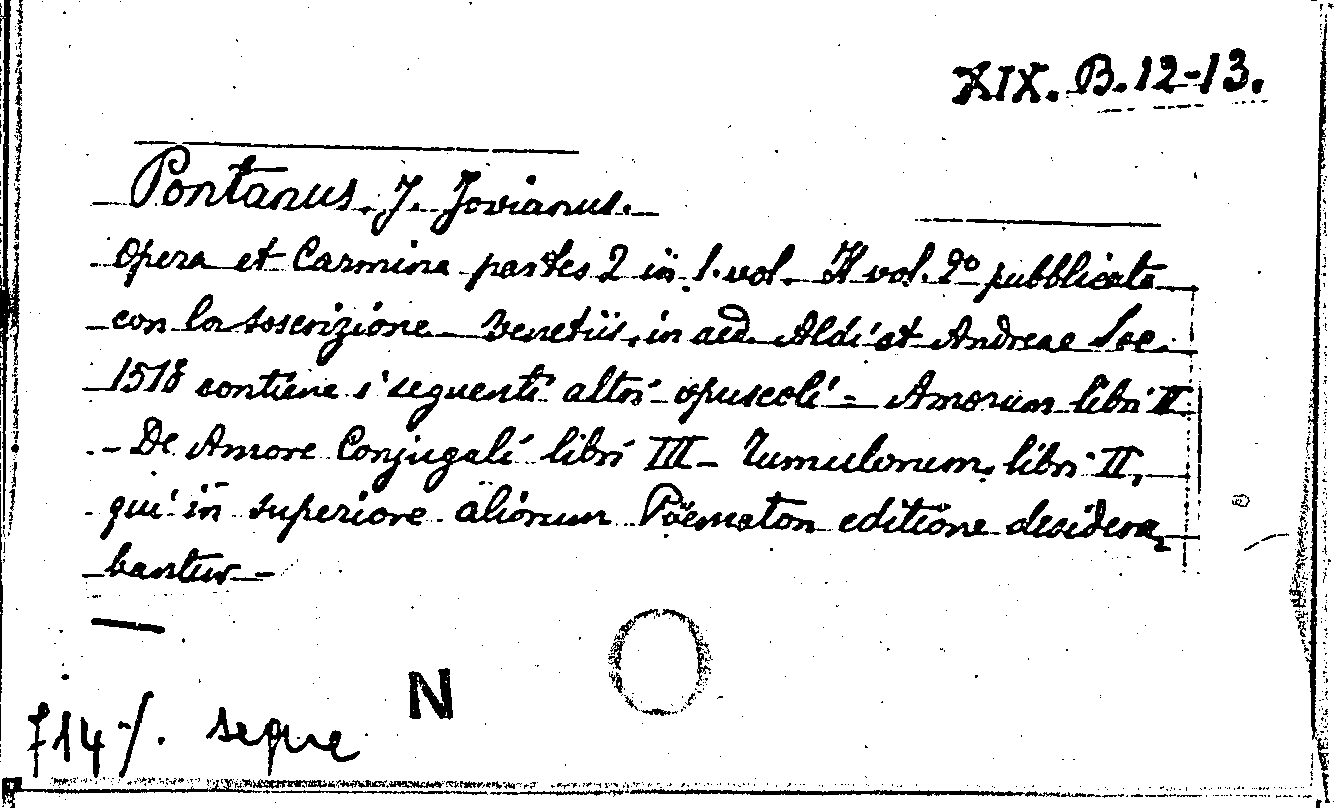 XIX. B. 12-13.
Pontanus. J. Jovianus.
Opera et Carmina partes 2 in 1. vol. Il vol. 2º pubblicato
con la soscrizione Venetiis, in aed. Aldi et Andreae Soc.
1518 contiene i seguenti altri opuscoli - Amorum libri II
- De Amore Conjugali libri III - Tumulorum libri II,
qui in superiore aliorum Poematon editione desidera
bantur -
714/. segue N